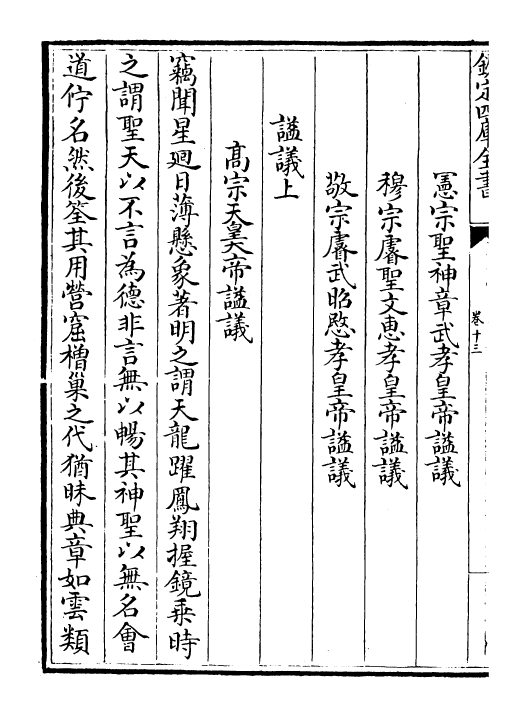 欽定四庫全書
卷十三
憲宗聖神章武孝皇帝謚議
穆宗睿聖文恵孝皇帝謚議
敬宗睿武昭愍孝皇帝謚議
謚議上
高宗天皇大帝謚議
竊聞星廻日薄懸象著明之謂天龍躍鳳翔握鏡乗時
之謂聖天以不言為德非言無以暢其神聖以無名會
道佇名然後筌其用營窟橧巢之代猶昧典章如雲類